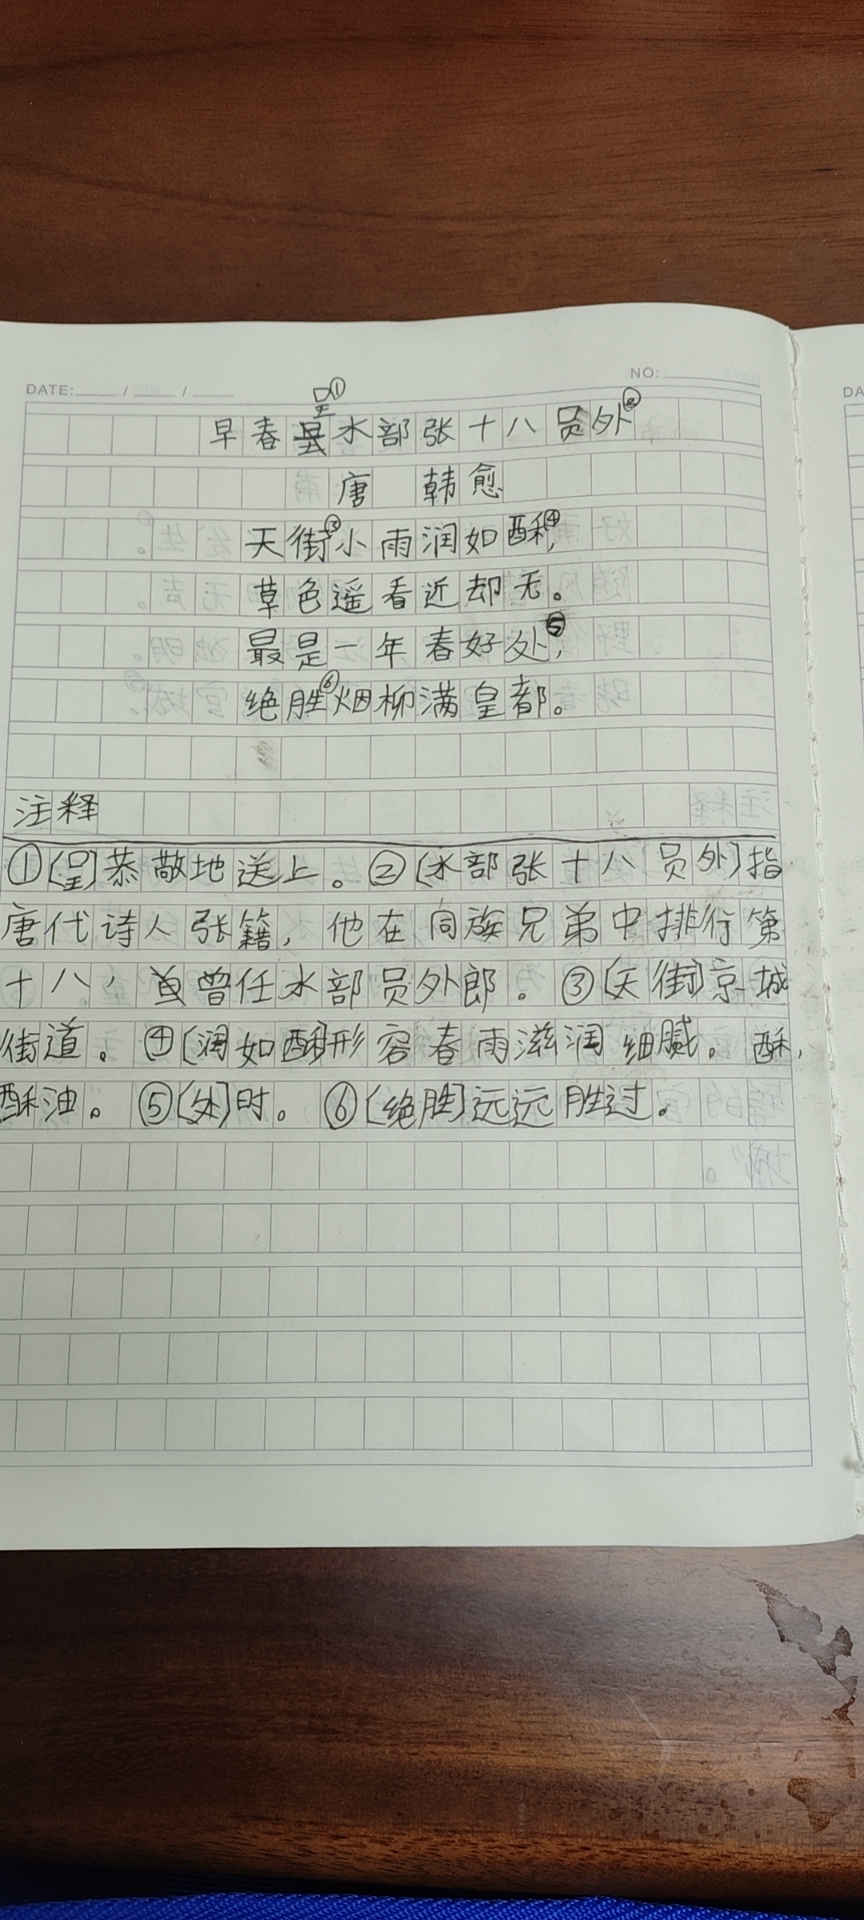 DATE: / /
NO:
早春呈①水部张十八员外②
唐 韩愈
天街③小雨润如酥④,
草色遥看近却无。
最是一年春好处⑤,
绝胜⑥烟柳满皇都。
注释
①[呈]恭敬地送上。②[水部张十八员外]指
唐代诗人张籍,他在同族兄弟中排行第
十八,曾任水部员外郎。③[天街]京城
街道。④[润如酥]形容春雨滋润细腻。酥,
酥油。⑤[处]时。⑥[绝胜]远远胜过。
DA